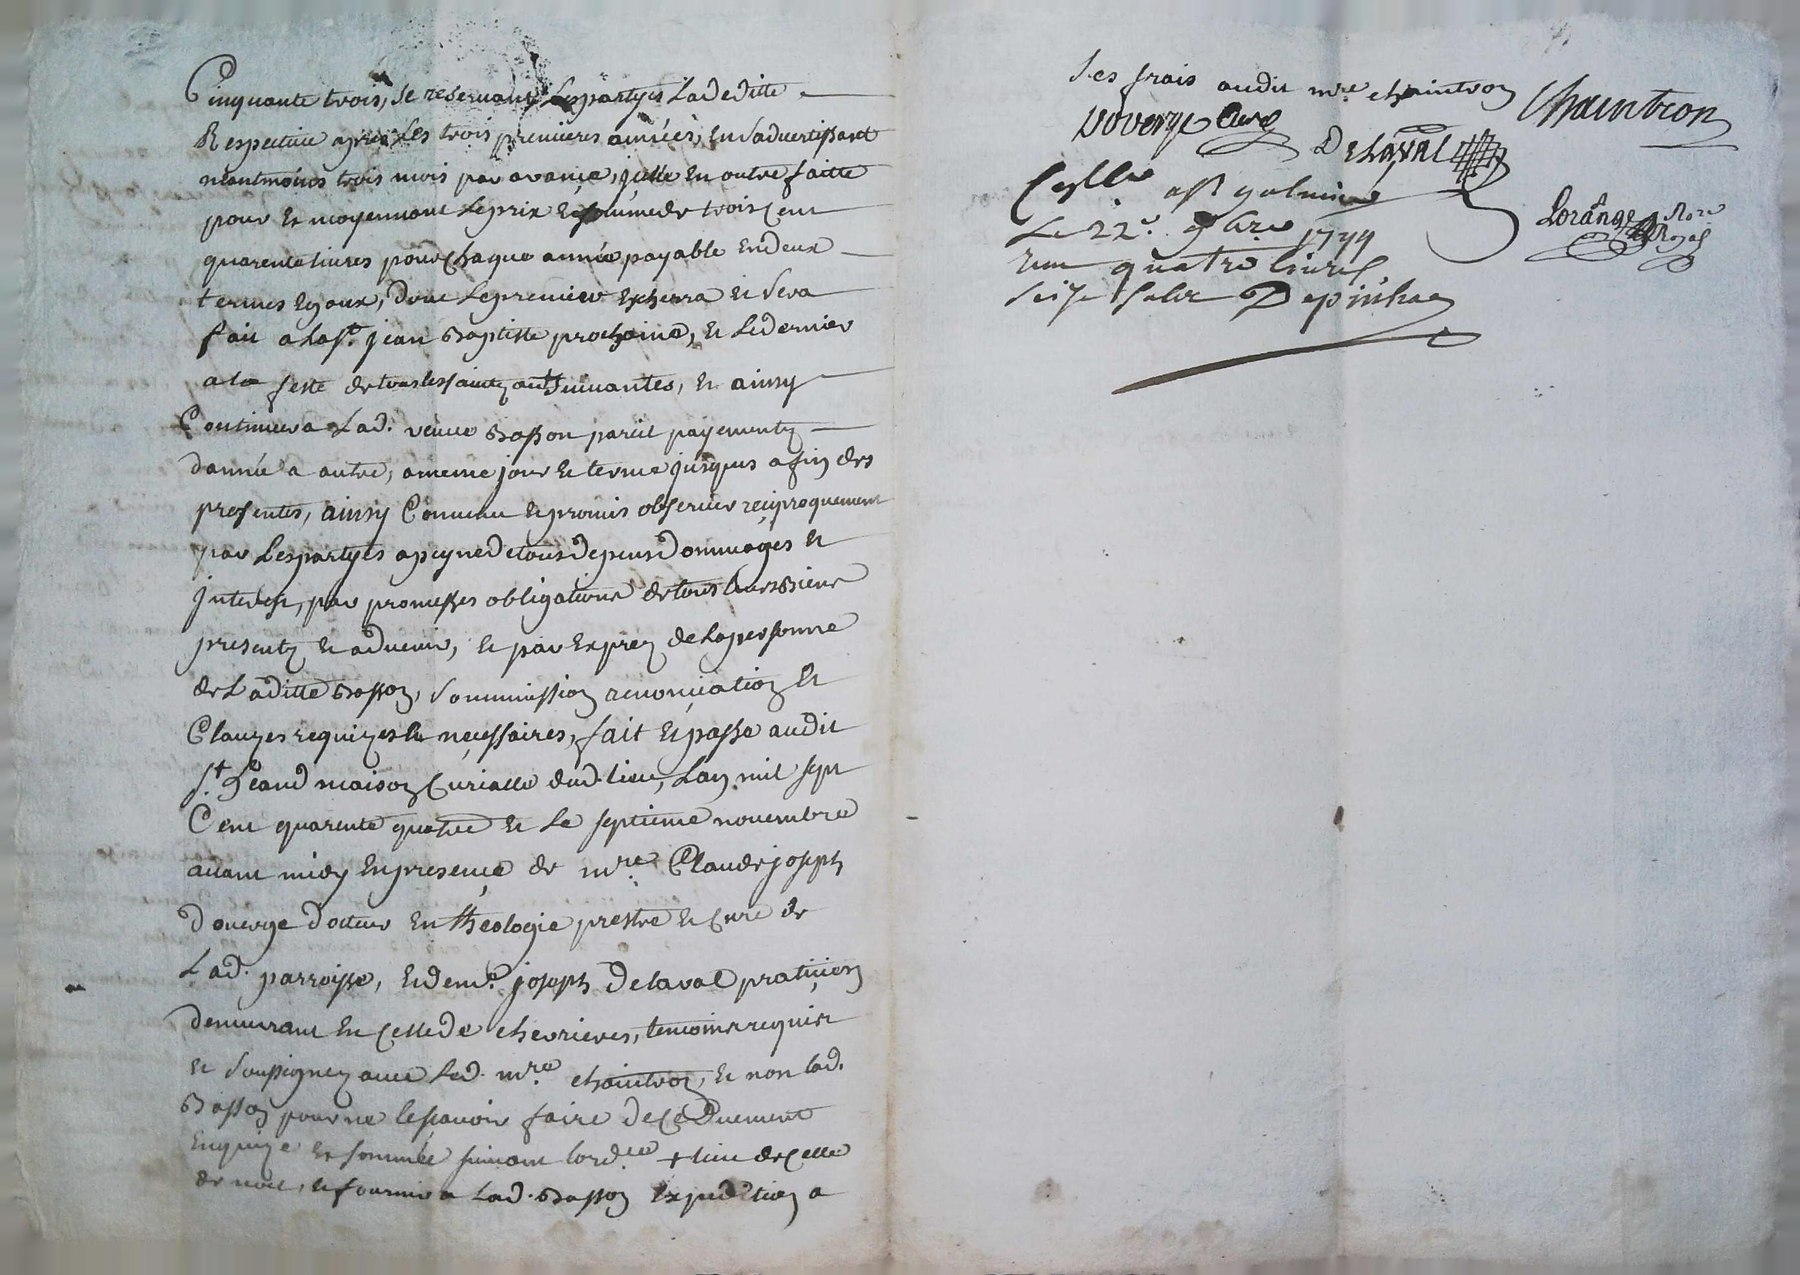 Cinquante trois, se reservant Lespartyes Ladeditte
Respective apres Les trois premieres années, en s'advertissant
neantmoins trois mois par avance, icelle En outre faitte
pour Et moyennant Leprix Et somme de trois Cent
quarente livres pour Chaque année payable En deux
termes Egaux, dont Lepremier Echerra Et sera
fait a la St. jean Baptiste prochaine, et Le dernier
a la feste de tous les saints suivantes, Et ainsy
Continuera Lad. veuve Basson pareil payementz
dannée a autre, a meme jour Et terme jusques a fin des
presentes, ainsy Convenu Et promis observer reciproquement
par Lespartyes a peyne de tous depens Dommages Et
Interest, par promesses obligations de tous leurs Biens
presentz Et advenir, Et par Exprez de La personne
de Laditte Basson, soummission renonciation Et
Clauzes requizes Et necessaires, fait Et passé audit
St. heand maison Curialle dud. lieu, Lan mil sept
Cent quarente quatre Et Le septieme novembre
avant midy En presence de mre. Claude joseph
Douerge Docteur En theologie prestre Et Curé de
Lad. parroisse, Et de me. joseph Delaval praticien
demeurant En Celle de chevrieres, temoins requis
Et soussignez avec Led. mre. chaintron, Et non lad.
Basson pour ne le scavoir faire de Ce Duement
Enquize Et sommée suivant lord.ce + lieu de Celle
de noel, Et fournir a Lad. Basson Expedition a
ses frais audit mre. chaintron
Chaintron
Douerge Curé
Delaval
Lorange Nore
Royal
Cyllé a St galmier
Le 22e. 9bre 1744
Reçu quatre livres
seize sols Depinhac